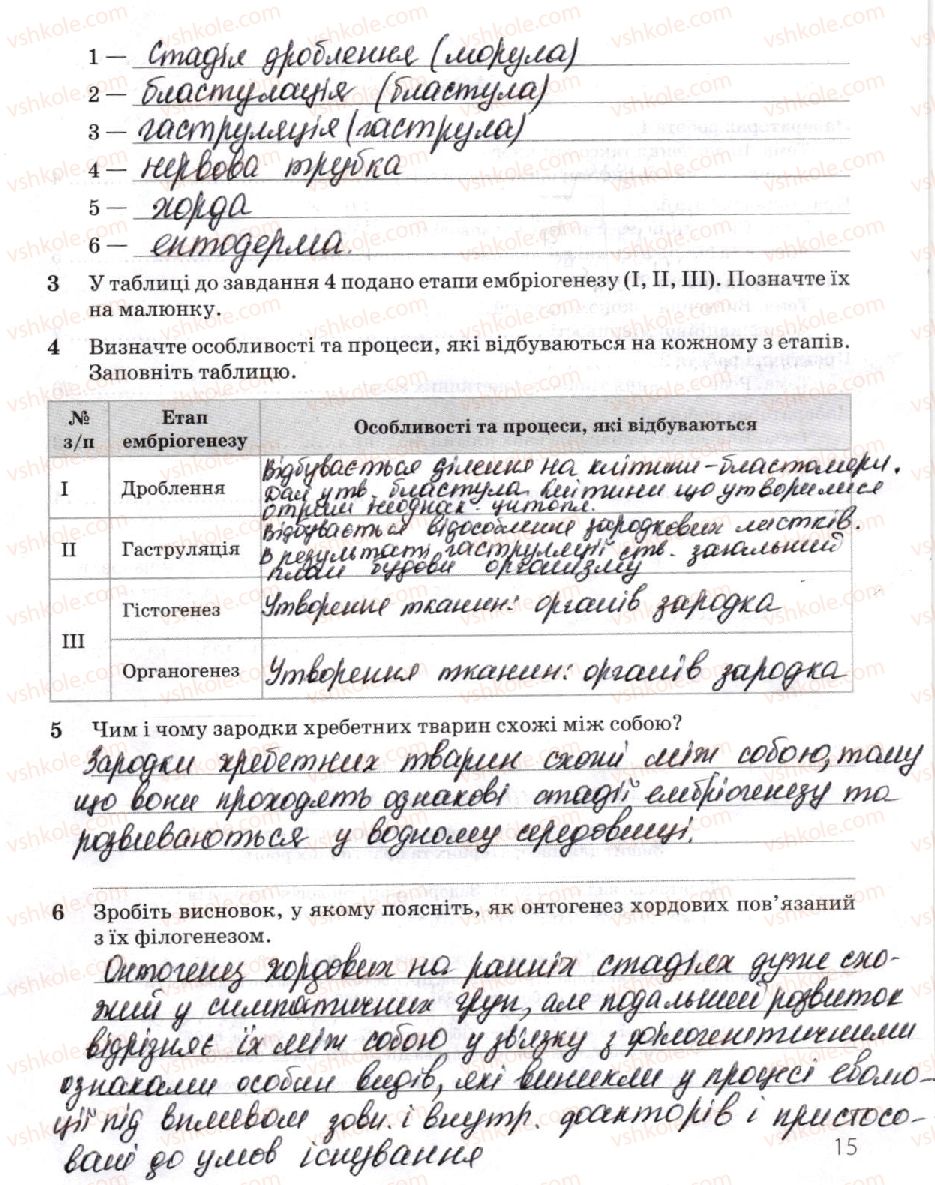 1 — Стадія дроблення (морула)
2 — бластуляція (бластула)
3 — гаструляція (гаструла)
4 — нервова трубка
5 — хорда
6 — ентодерма.
3 У таблиці до завдання 4 подано етапи ембріогенезу (І, ІІ, ІІІ). Позначте їх
на малюнку.
4 Визначте особливості та процеси, які відбуваються на кожному з етапів.
Заповніть таблицю.
№ з/п Етап ембріогенезу Особливості та процеси, які відбуваються
І Дроблення Відбувається ділення на клітини-бластомери.
Далі утв. бластула. Клітини що утворилися
отрим неоднак. цитопл.
ІІ Гаструляція Відбувається відособлення зародкових листків.
В результаті гаструляції ств. загальний
план будови організму
ІІІ Гістогенез Утворення тканин: органів зародка
Органогенез Утворення тканин: органів зародка
5 Чим і чому зародки хребетних тварин схожі між собою?
Зародки хребетних тварин схожі між собою, тому
що вони проходять однакові стадії ембріогенезу та
розвиваються у водному середовищі.
6 Зробіть висновок, у якому поясніть, як онтогенез хордових пов’язаний
з їх філогенезом.
Онтогенез хордових на ранніх стадіях дуже схо-
жий у симпатичних груп, але подальший розвиток
відрізняє їх між собою у зв'язку з філогенетичними
ознаками особин видів, які виникли у процесі еволю-
ції під впливом зовн. і внутр. факторів і пристосо-
вані до умов існування
15
vshkole.com